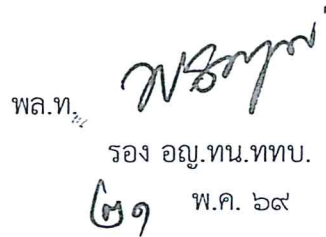 พล.ท.
รอง อญ.ทน.ททบ.
๒๑ พ.ค. ๖๙